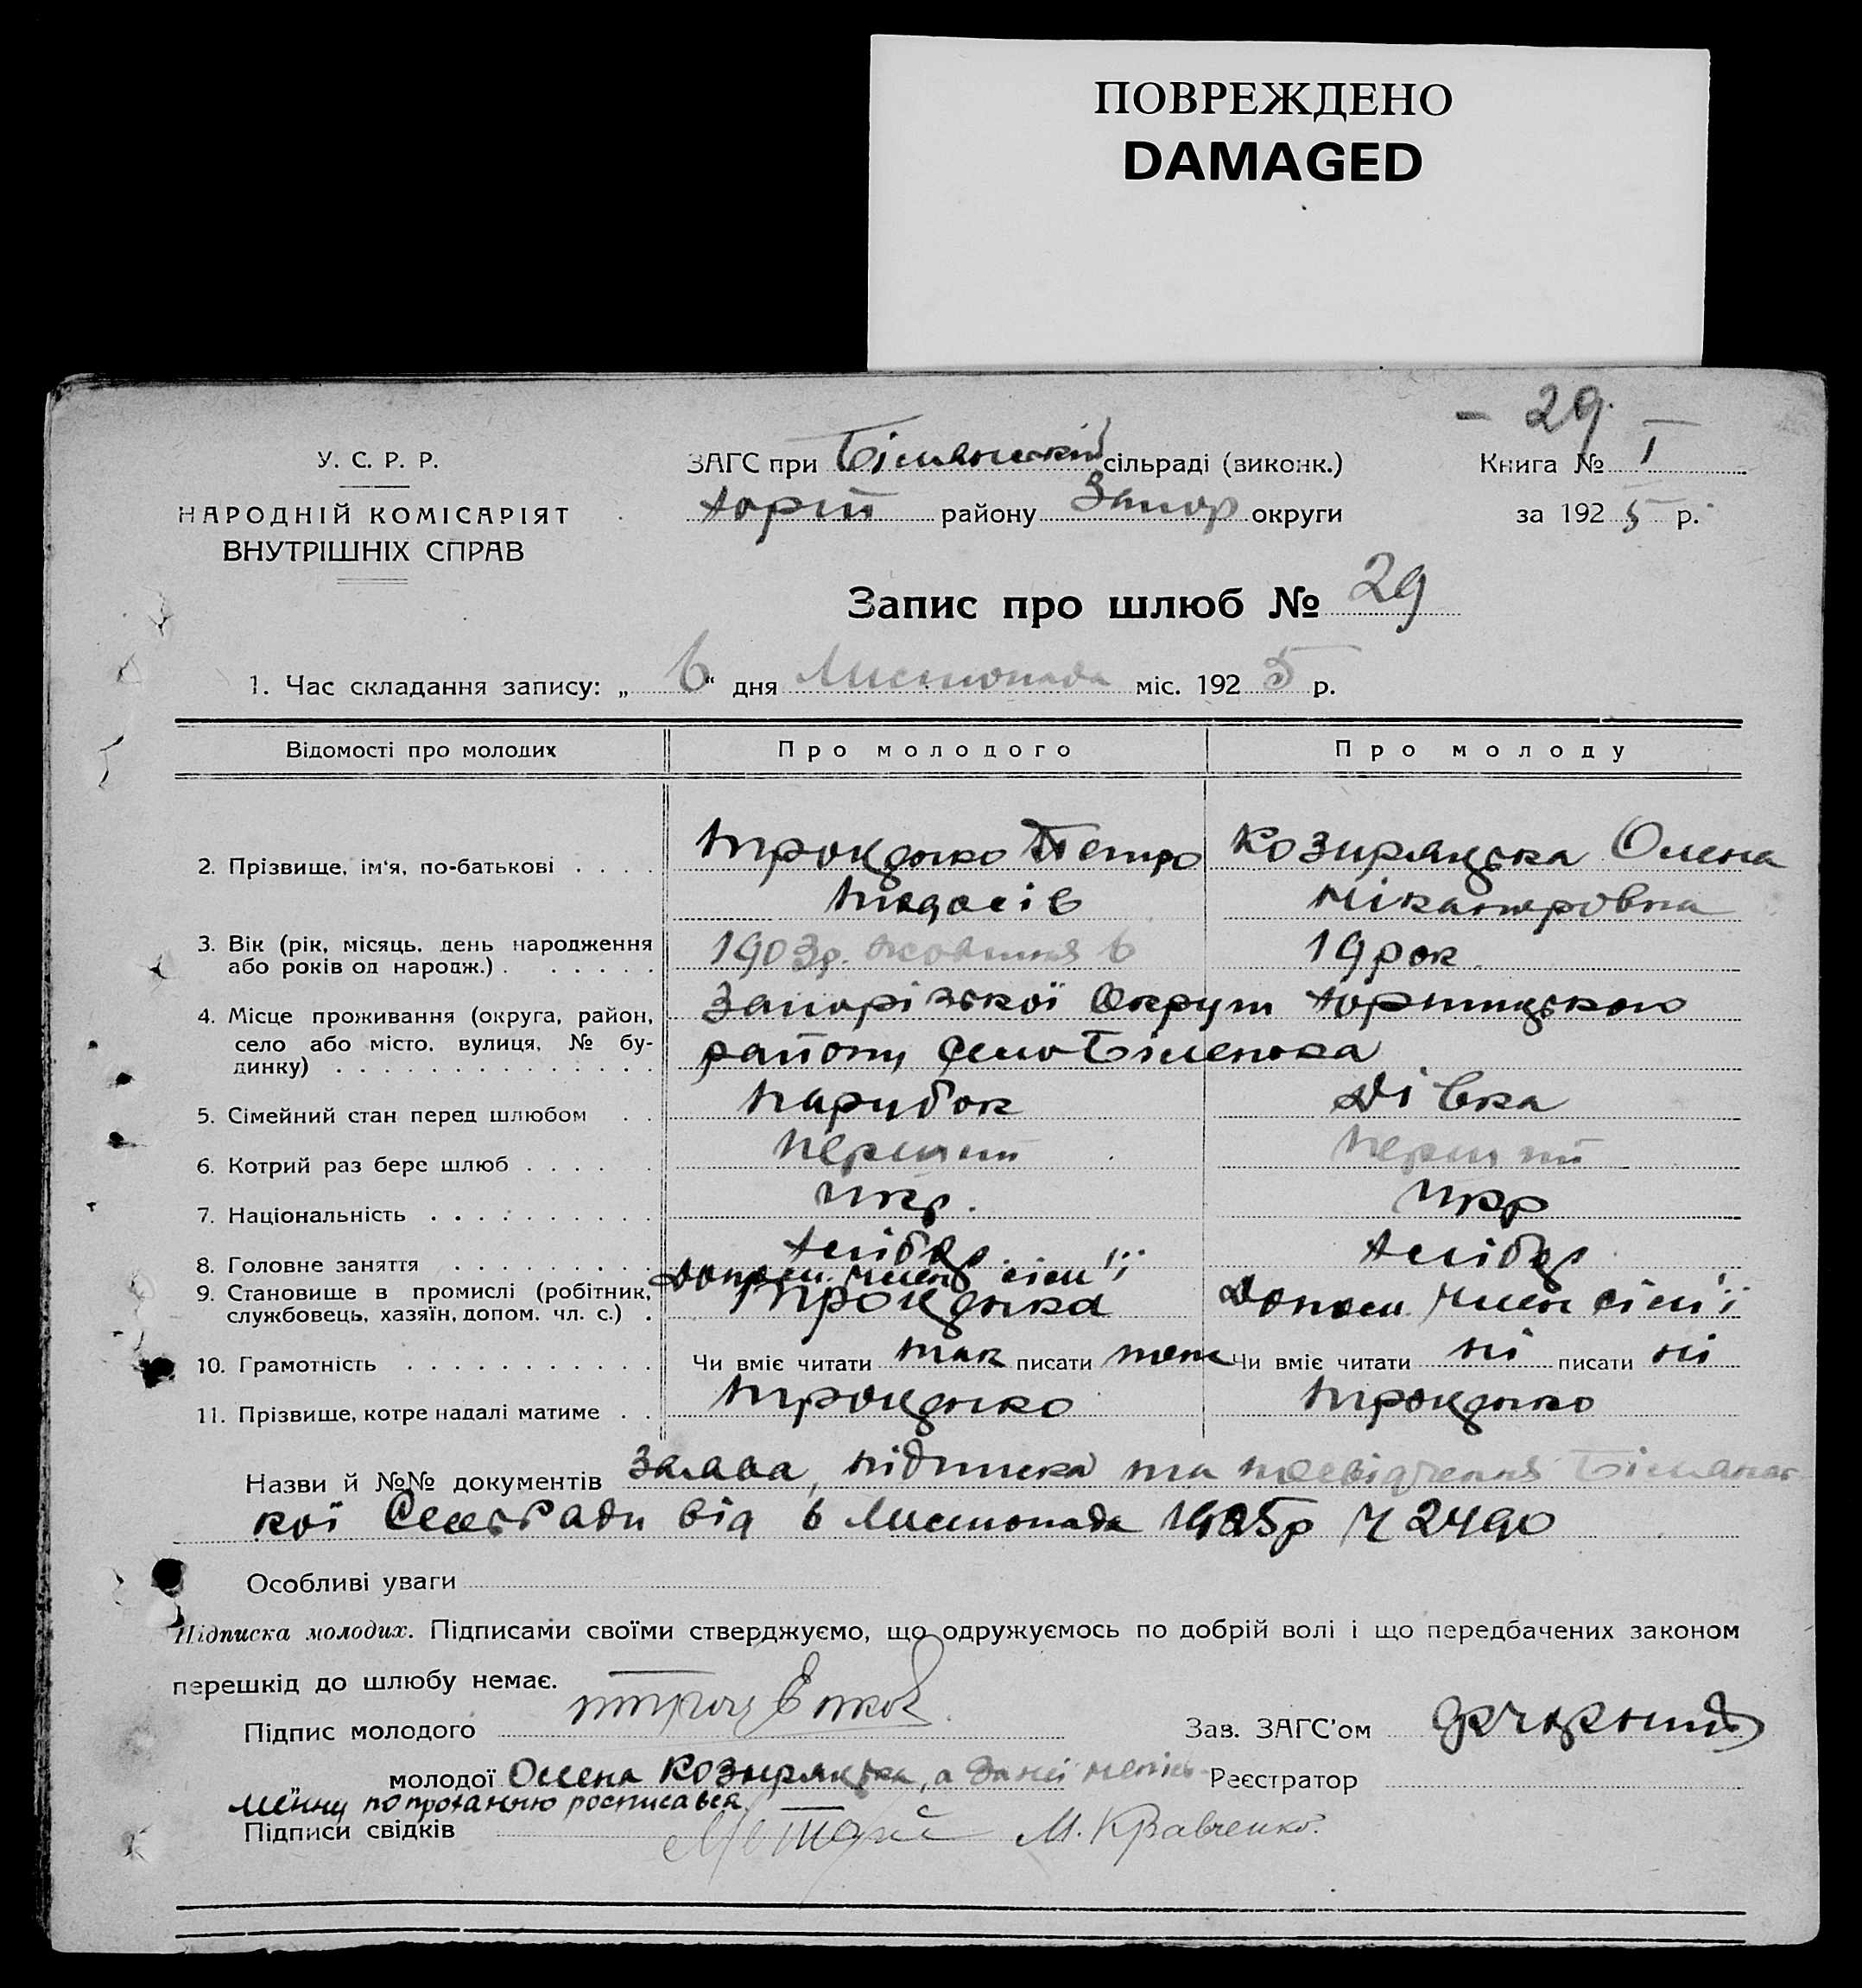 ПОВРЕЖДЕНО
DAMAGED
- 29.
У. С. Р. Р.
НАРОДНІЙ КОМІСАРІЯТ
ВНУТРІШНІХ СПРАВ
ЗАГС при Біляньскій сільраді (виконк.)
Хорт району Запор округи
Книга № I
за 1925 р.
Запис про шлюб № 29
1. Час складання запису: „6“ дня Листопада міс. 1925 р.
Відомості про молодих
Про молодого
Про молоду
2. Прізвище, ім'я, по-батькові . . . .
Троценко Петро
Козиряцька Олена
Тодосів
Ніканоровна
3. Вік (рік, місяць, день народження
або років од народж.) . . . . . .
1903р. жовтня 6
19 рок.
4. Місце проживання (округа, район,
село або місто, вулиця, № бу-
динку) . . . . . . . . . . . . . .
Запорізської Округи Хортицького
району Село Біленька
5. Сімейний стан перед шлюбом . .
парубок
Дівка
6. Котрий раз бере шлюб . . . . .
перший
перший
7. Національність . . . . . . . . . .
Укр.
Укр
8. Головне заняття . . . . . . . . .
Хлібор.
Хлібор
9. Становище в промислі (робітник,
службовець, хазяїн, допом. чл. с.) .
Допом. член сім'ї
Допом. член сім'ї
10. Грамотність . . . . . . . . . . .
Чи вміє читати так писати теж
Чи вміє читати ні писати ні
11. Прізвище, котре надалі матиме . .
Троценко
Троценко
Назви й №№ документів Заява, підписка та посвідчення Білянсь-
кої СельРади від 6 Листопада 1925р Ч 2490
Особливі уваги
Підписка молодих. Підписами своїми стверджуємо, що одружуємось по добрій волі і що передбачених законом
перешкід до шлюбу немає.
Підпис молодого
Зав. ЗАГС'ом
„ молодої Олена Козиряцька, а за неї непись-
менну по проханню росписався
Реєстратор
Підписи свідків
М. Кравченко.